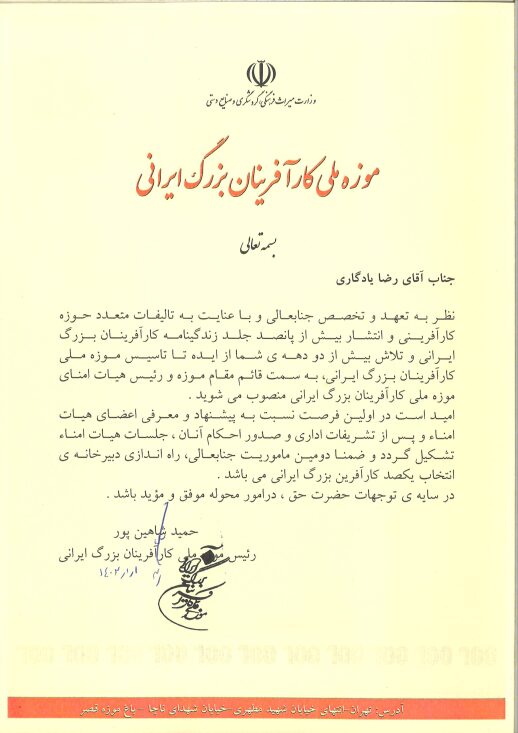 وزارت میراث فرهنگی، گردشگری و صنایع دستی
موزه ملی کارآفرینان بزرگ ایرانی
بسمه تعالی
جناب آقای رضا یادگاری
نظر به تعهد و تخصص جنابعالی و با عنایت به تالیفات متعدد حوزه
کارآفرینی و انتشار بیش از پانصد جلد زندگینامه کارآفرینان بزرگ
ایرانی و تلاش بیش از دو دهه ی شما از ایده تا تاسیس موزه ملی
کارآفرینان بزرگ ایرانی، به سمت قائم مقام موزه و رئیس هیات امنای
موزه ملی کارآفرینان بزرگ ایرانی منصوب می شوید .
امید است در اولین فرصت نسبت به پیشنهاد و معرفی اعضای هیات
امناء و پس از تشریفات اداری و صدور احکام آنان ، جلسات هیات امناء
تشکیل گردد و ضمنا دومین ماموریت جنابعالی، راه اندازی دبیرخانه ی
انتخاب یکصد کارآفرین بزرگ ایرانی می باشد .
در سایه ی توجهات حضرت حق ، درامور محوله موفق و مؤید باشد .
حمید شاهین پور
رئیس موزه ملی کارآفرینان بزرگ ایرانی
آدرس: تهران-انتهای خیابان شهید مطهری-خیابان شهدای ناجا - باغ موزه قصر